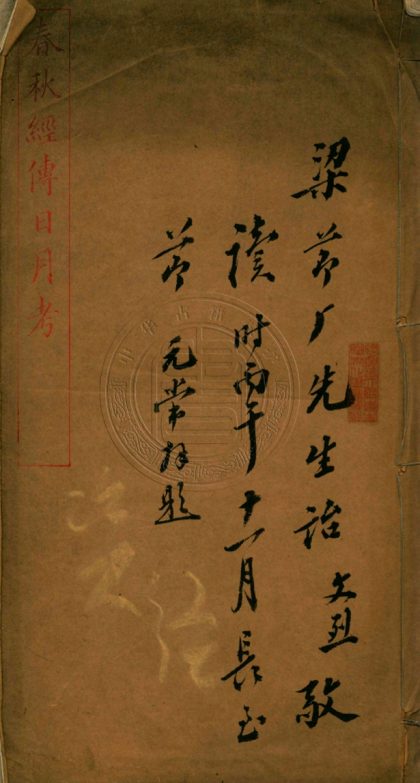 梁节厂先生詒文烈敬
讀时丙午十一月長至
节 元常拜題
春秋經傳日月考